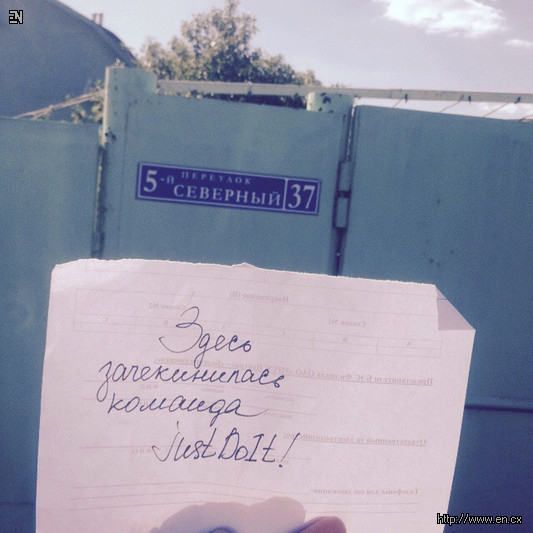 EN
5-й ПЕРЕУЛОК
СЕВЕРНЫЙ 37
Здесь
зачекинилась
команда
justDoIt!
http://www.en.cx